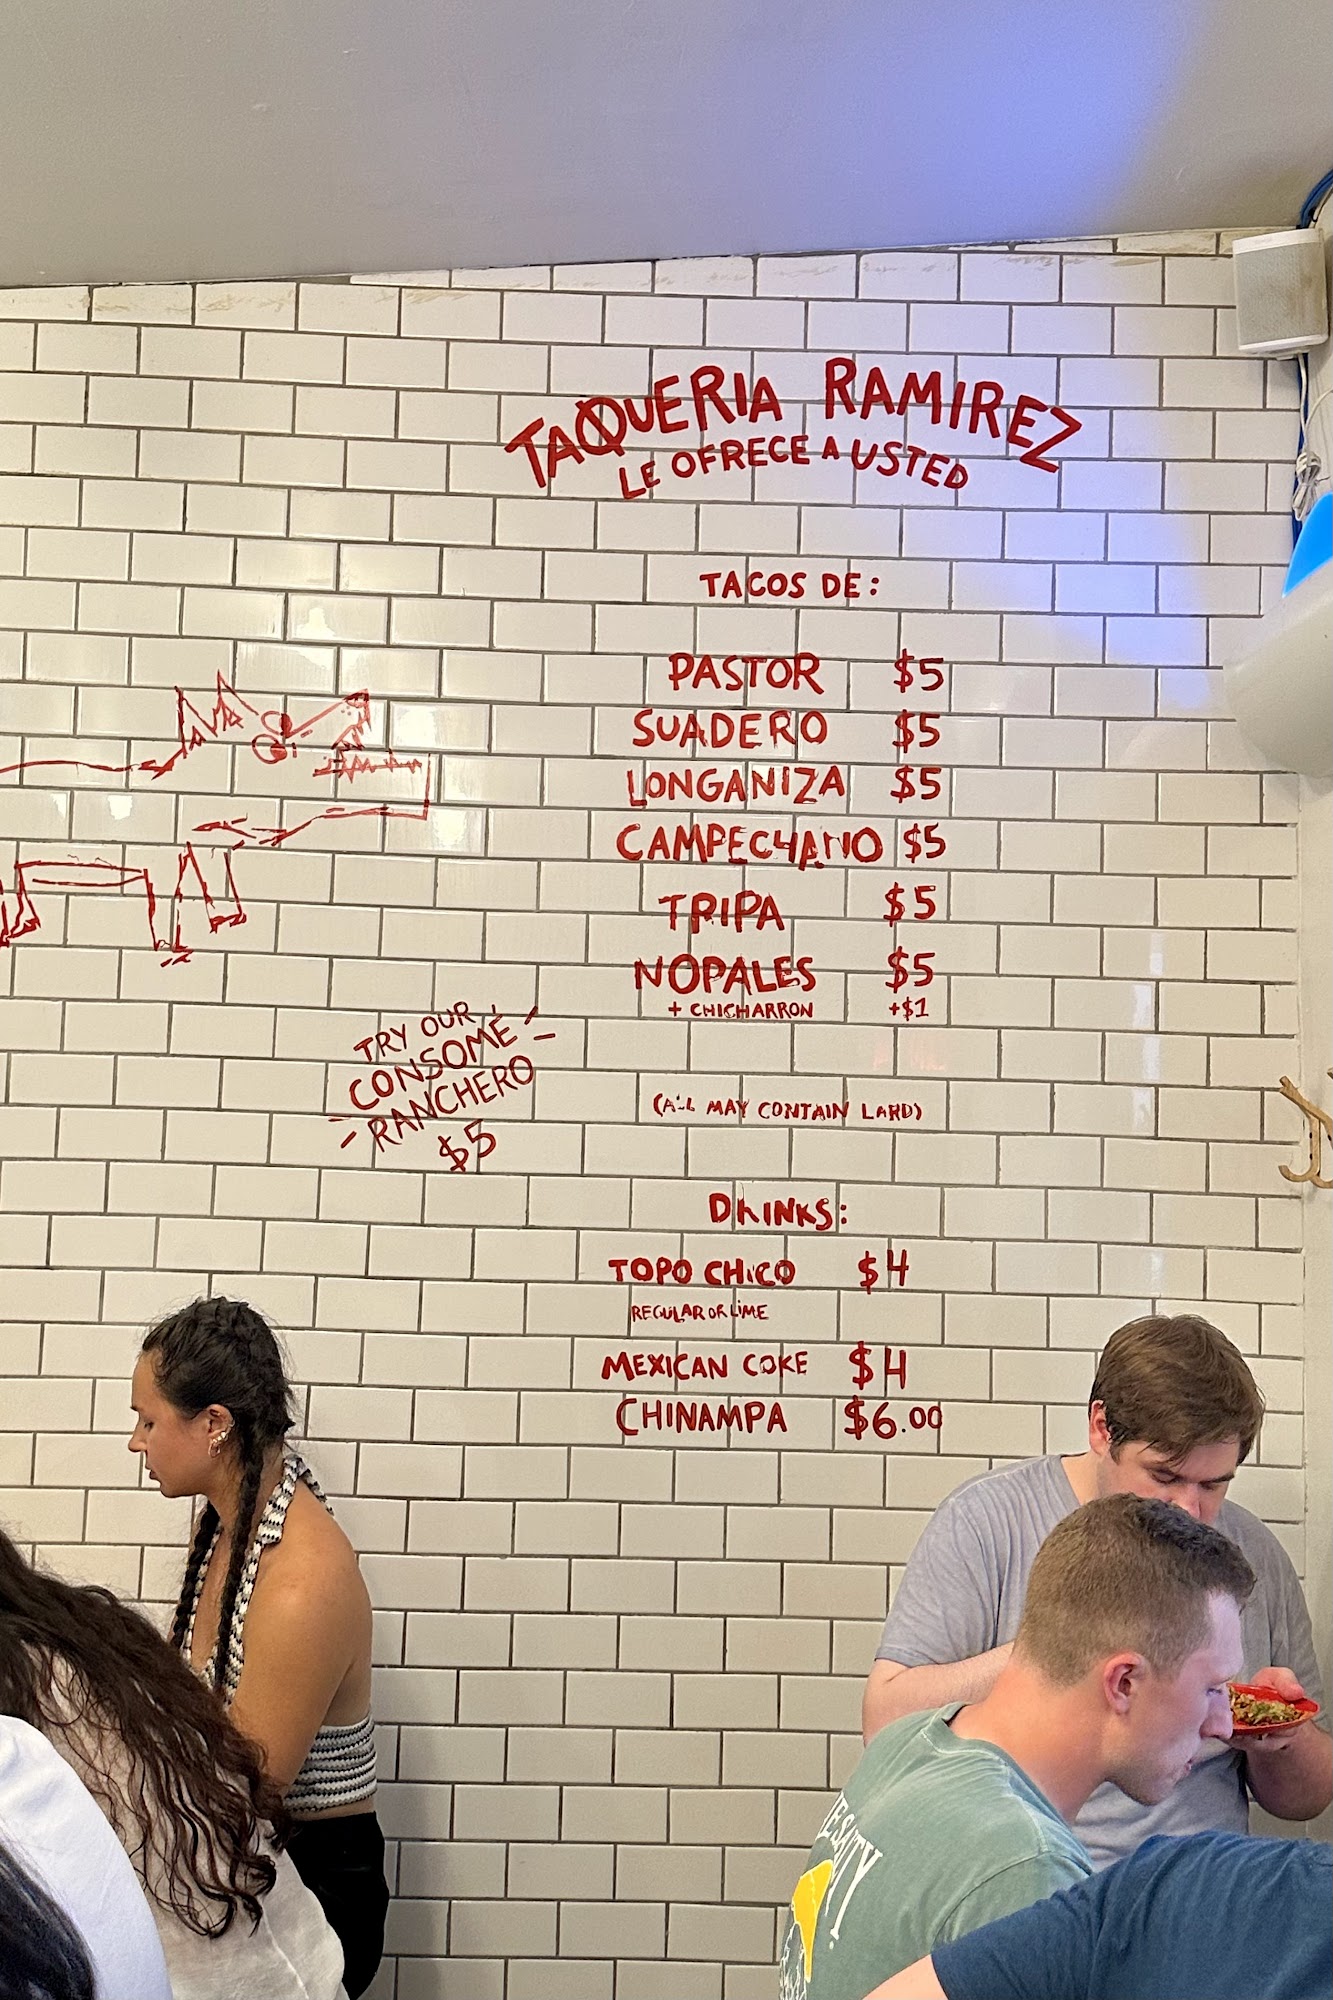 TAQUERIA RAMIREZ
LE OFRECE A USTED
TACOS DE:
PASTOR $5
SUADERO $5
LONGANIZA $5
CAMPECHANO $5
TRIPA $5
NOPALES $5
+ CHICHARRON +$1
(ALL MAY CONTAIN LARD)
TRY OUR
CONSOMÉ
RANCHERO
$5
DRINKS:
TOPO CHICO $4
REGULAR OR LIME
MEXICAN COKE $4
CHINAMPA $6.00